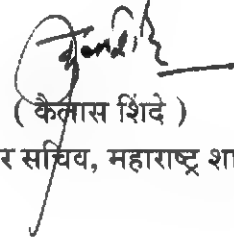 ( कैलास शिंदे )
र सचिव, महाराष्ट्र शा